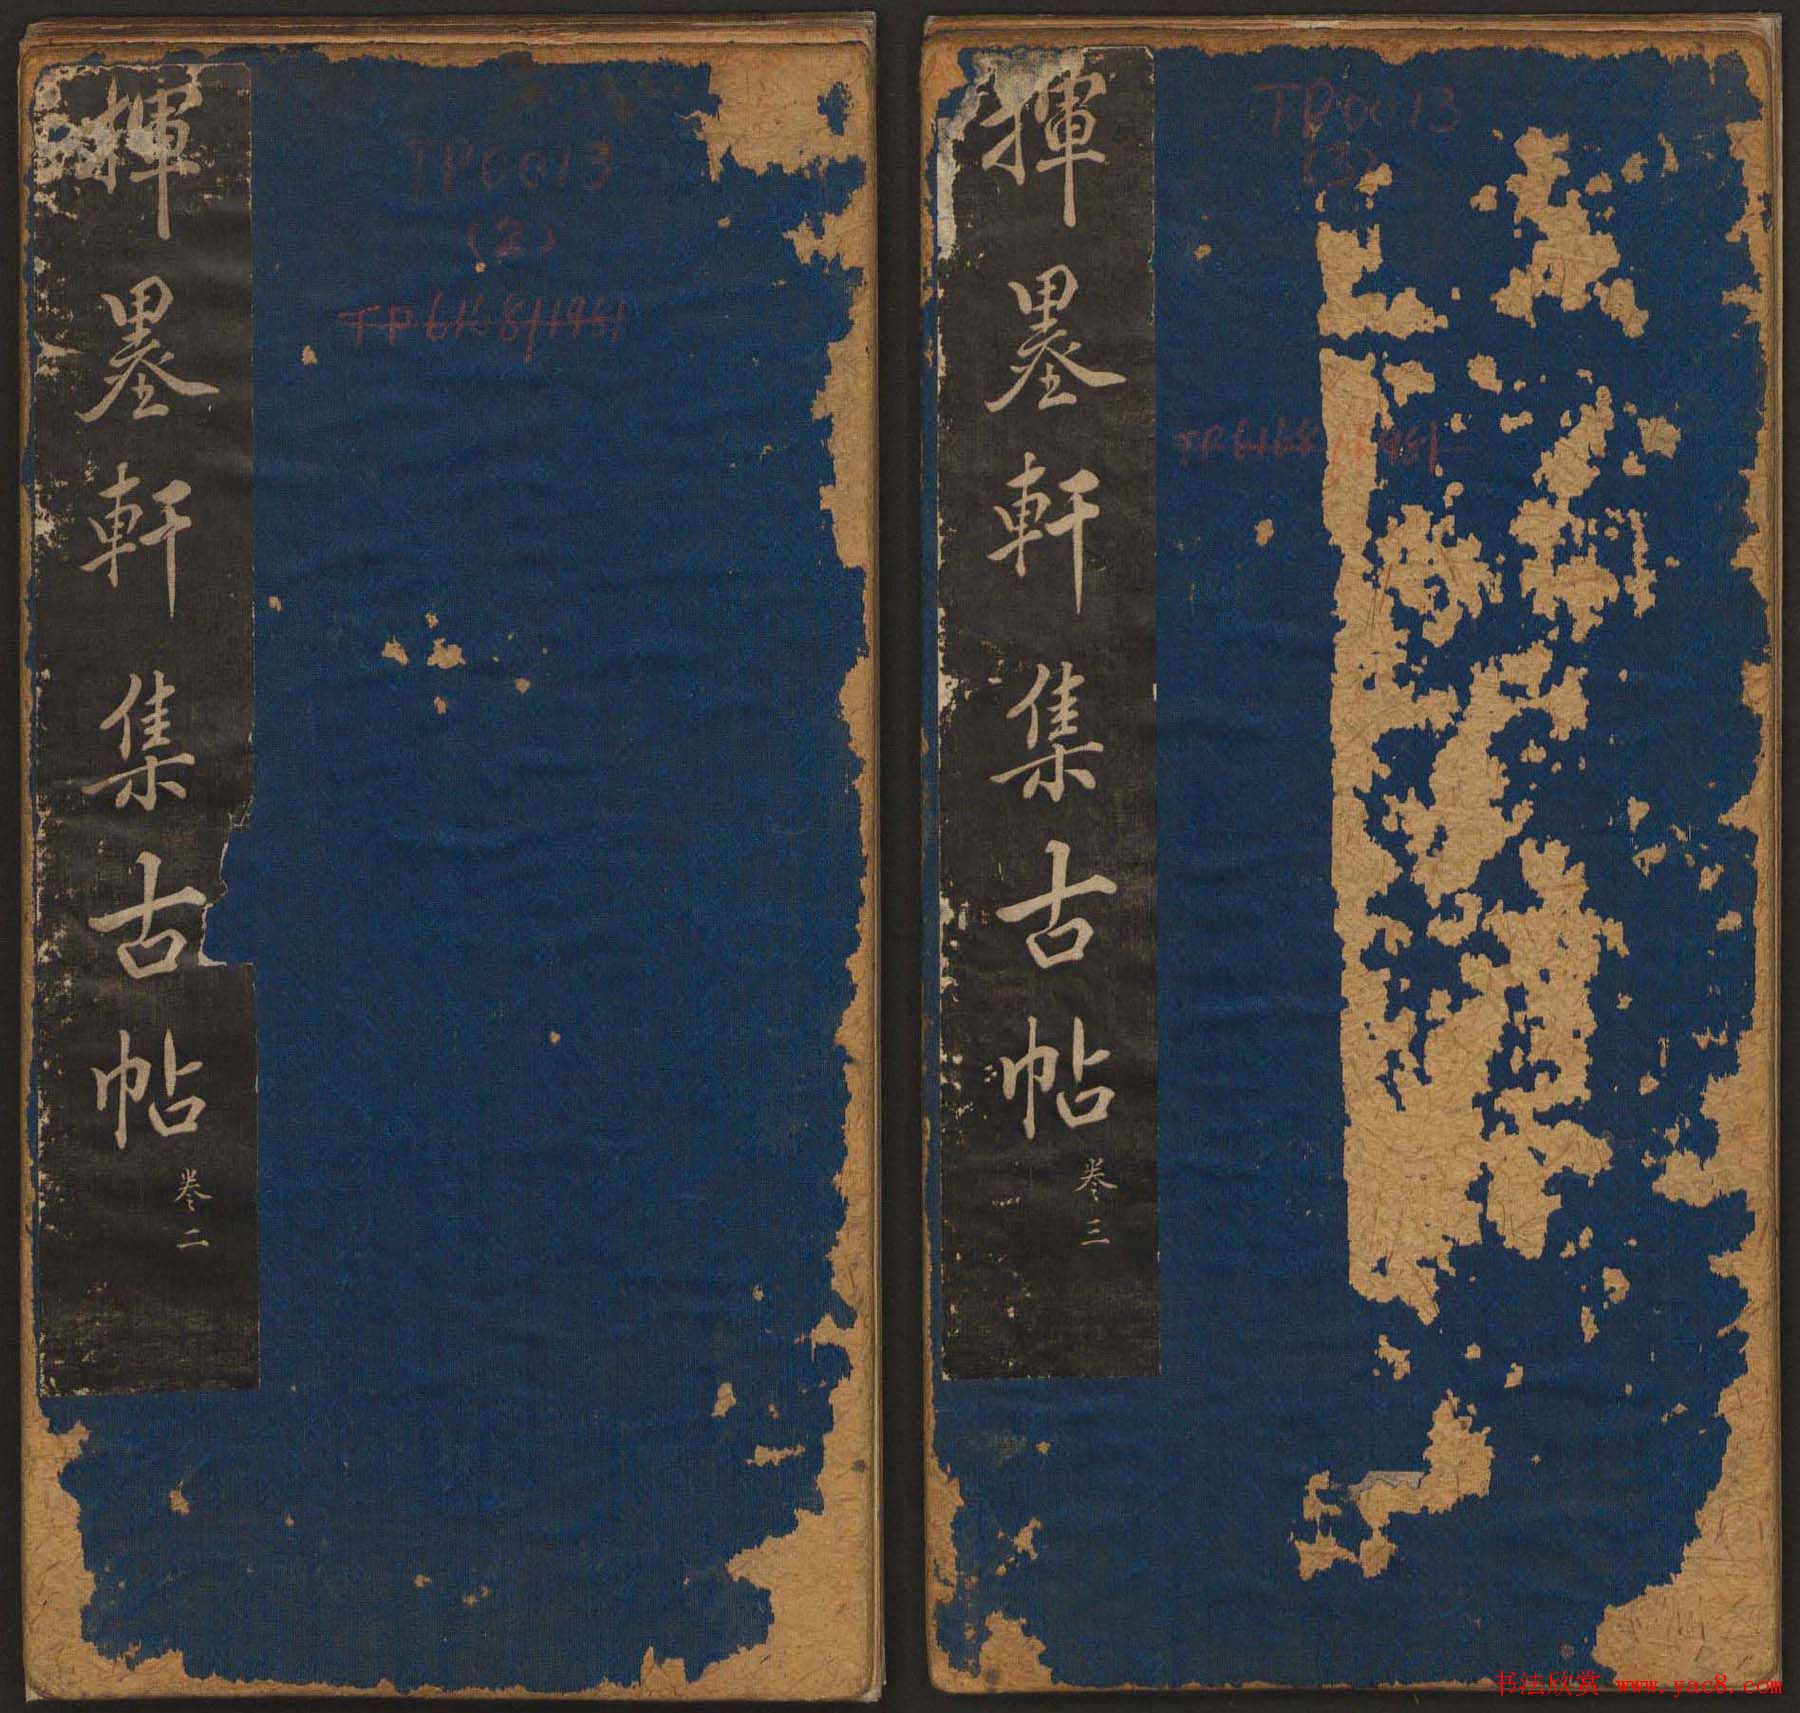 揮墨軒集古帖
卷二
TP0013
(2)
揮墨軒集古帖
卷三
TP0013
(3)
书法欣赏 www.yac8.com